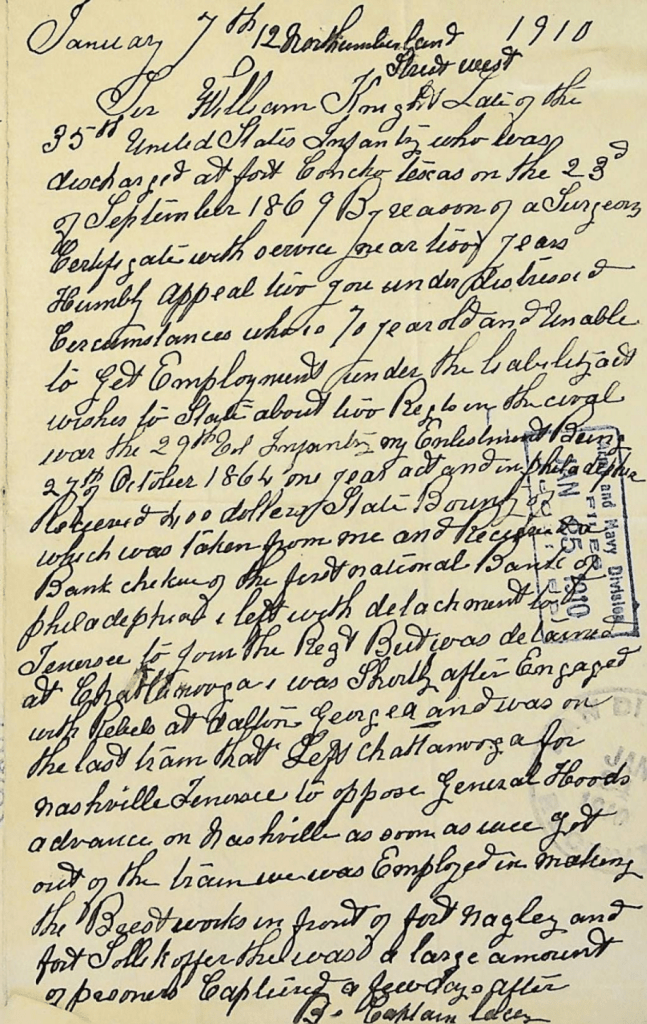 January 7th 12 Northumberland 1910
Street west
Sir William Knight Late of the
35th United States Infantry who was
discharged at fort Concho texas on the 23d
of September 1869 By reason of a Surgeons
Certifigate with service near twoo years
Humbly Appeal two you under distressed
Cercumstances who is 70 year old and Unable
to Get Employment under the liability act
wishes to State about two Regts in the cival
war the 29th Infantry my Enlestment Being
27th of October 1864 one year act and in philadephia
Received 400 dollers State Bounty
which was taken from me and Received a
Bank chekue of the first national Bank of
philadephia i left with detachment for
Tenersee to join the Regt But was detained
at Chattanooga i was Shortly after Engaged
with Rebels at dalton Georgea and was on
the last train that Left chattanooga for
nashville Tenersee to oppose General Hoods
advance on Nashville as soon as wee got
out of the train we was Employed in making
the Brestworks in front of fort Nagley and
fort Sollikoffer the was a large amount
of prisoners Captured a few days after
By Captain
and Navy Division
FILED
JAN 25 1910